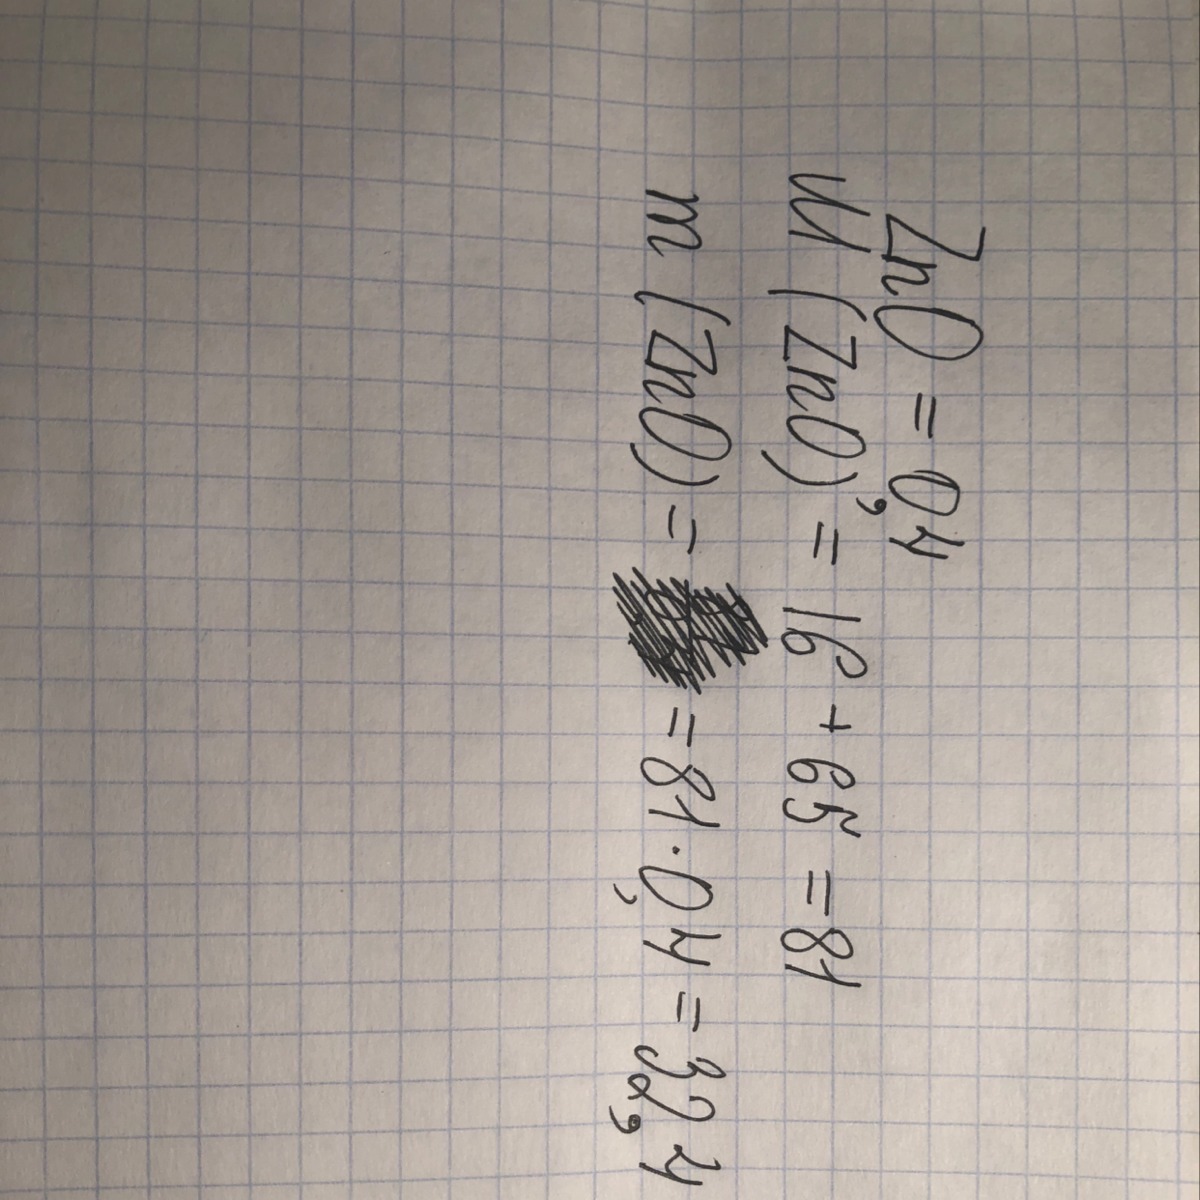 ZnO = 0,4
M (ZnO) = 16 + 65 = 81
m (ZnO) = = 81 · 0,4 = 32,4